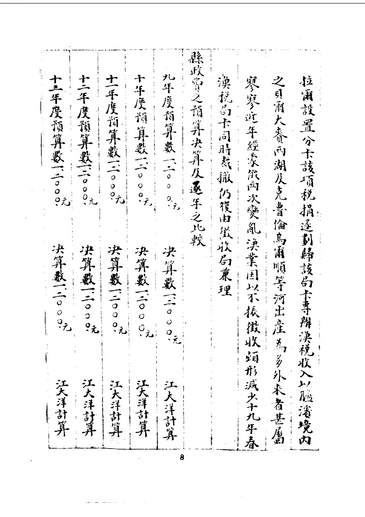 拉爾設置分卡該項稅捐遂劃歸該局卡專辦漁稅收入以臚濱境內
之貝爾大賚兩湖及克魯倫烏爾順等河出產為多外來者甚屬
寥寥近年經蒙俄兩次變亂漁業因以不振徵收頓形減少十九年春
漁稅局卡同時裁撤仍復由徵收局兼理
縣政費之預算決算及逐年之比較
九年度預算數一二〇〇〇元 決算數一二〇〇〇元 江大洋計算
十年度預算數一二〇〇〇元 決算數一二〇〇〇元 江大洋計算
十一年度預算數一二〇〇〇元 決算數一二〇〇〇元 江大洋計算
十二年度預算數一二〇〇〇元 決算數一二〇〇〇元 江大洋計算
十三年度預算數一二〇〇〇元 決算數一二〇〇〇元 江大洋計算
8